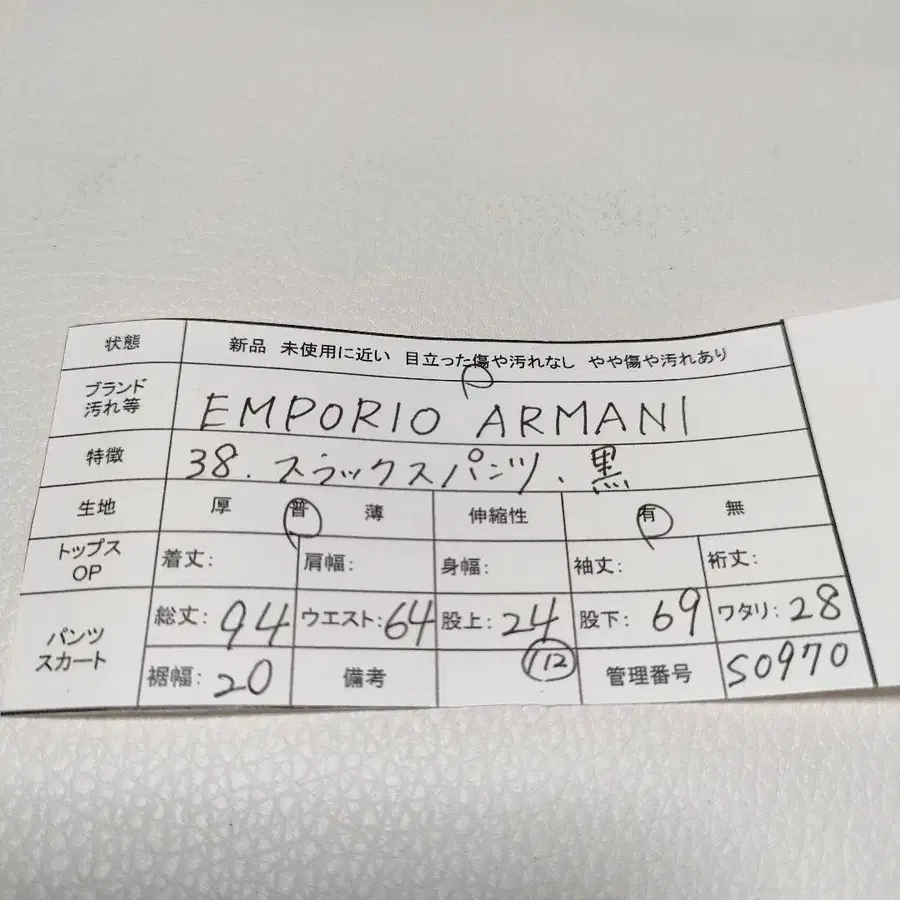 状態 新品 未使用に近い 目立った傷や汚れなし やや傷や汚れあり
ブランド
汚れ等 EMPORIO ARMANI
特徴 38. スラックスパンツ、黒
生地 厚 普 薄 伸縮性 有 無
トップス
OP 着丈: 肩幅: 身幅: 袖丈: 裄丈:
パンツ
スカート 総丈: 94 ウエスト: 64 股上: 24 股下: 69 ワタリ: 28
裾幅: 20 備考 112 管理番号 S0970